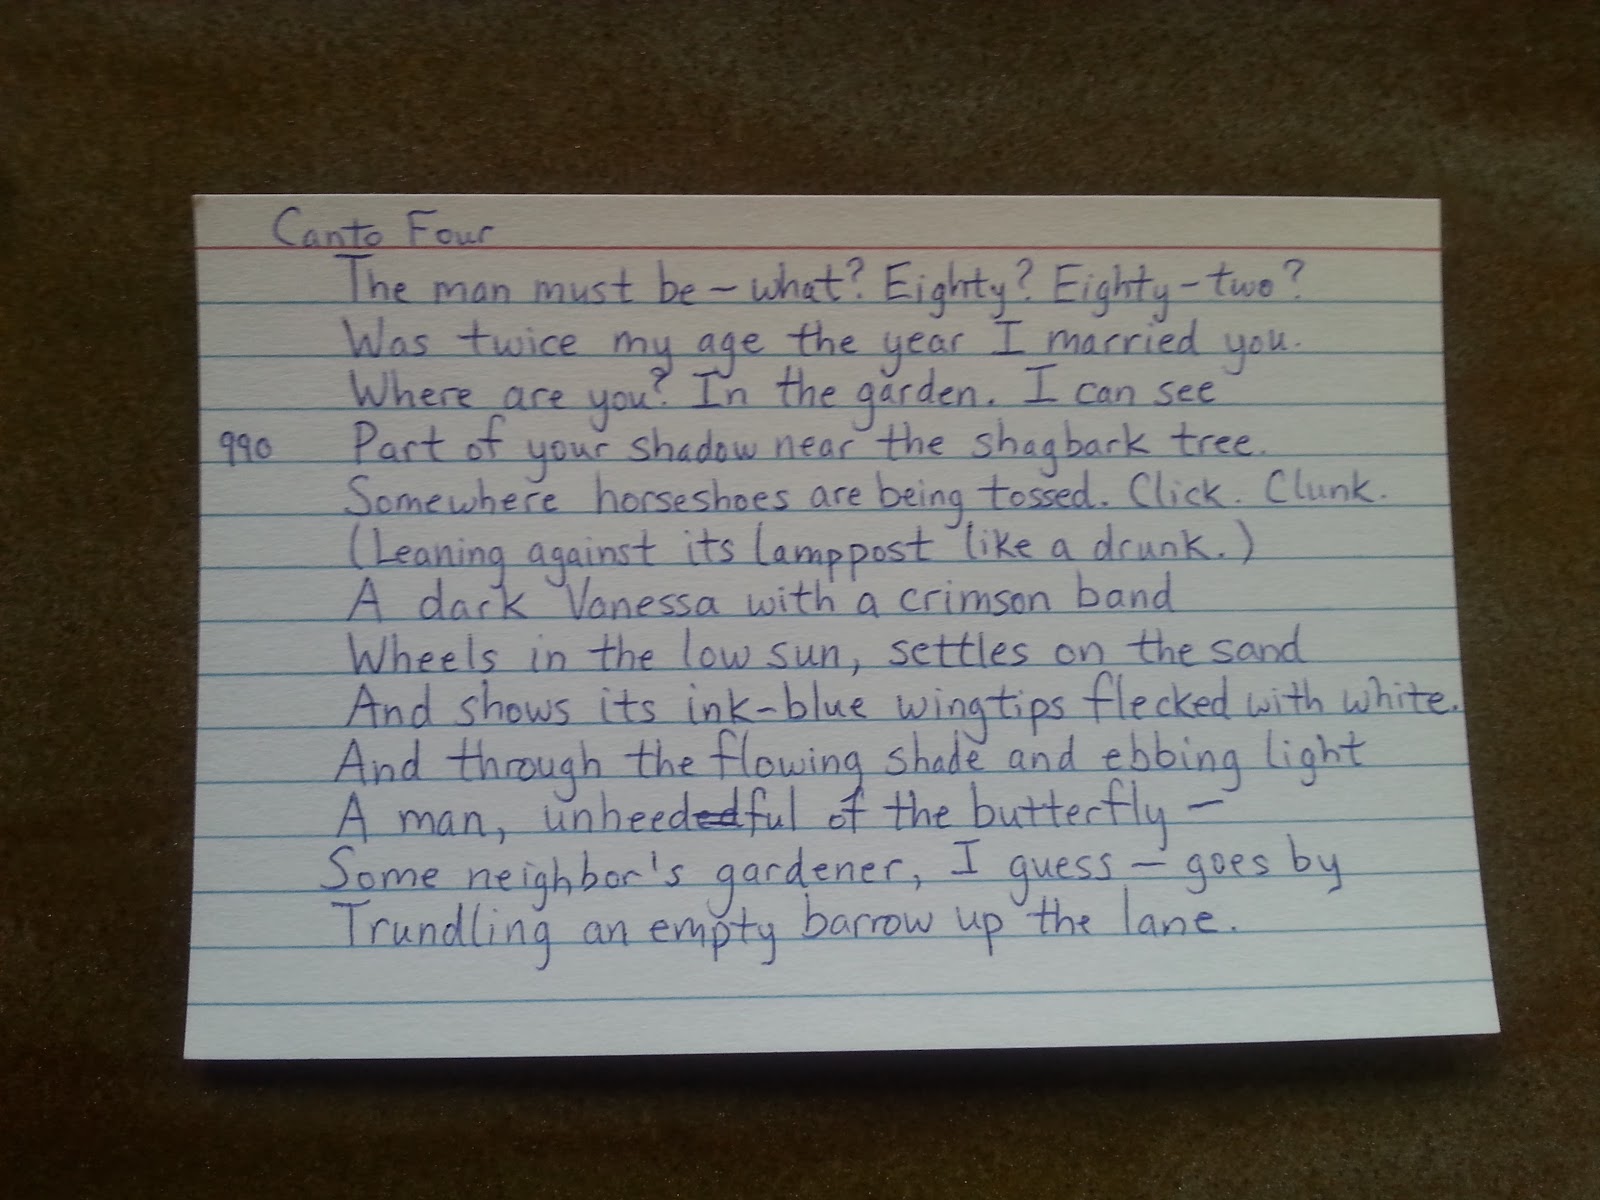 Canto Four
The man must be – what? Eighty? Eighty-two?
Was twice my age the year I married you.
Where are you? In the garden. I can see
990 Part of your shadow near the shagbark tree.
Somewhere horseshoes are being tossed. Click. Clunk.
(Leaning against its lamppost like a drunk.)
A dark Vanessa with a crimson band
Wheels in the low sun, settles on the sand
And shows its ink-blue wingtips flecked with white.
And through the flowing shade and ebbing light
A man, unheededful of the butterfly –
Some neighbor's gardener, I guess – goes by
Trundling an empty barrow up the lane.